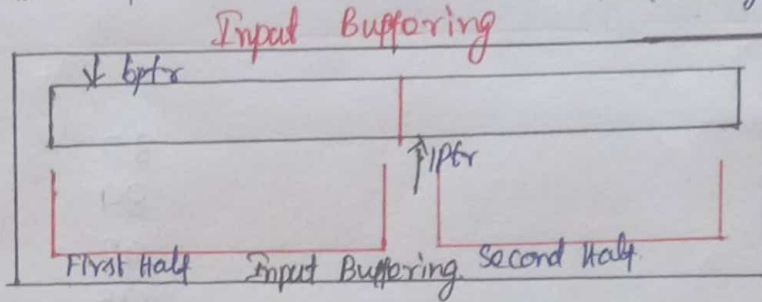 Input Buffering
bptr
lptr
First Half Input Buffering. Second Half.